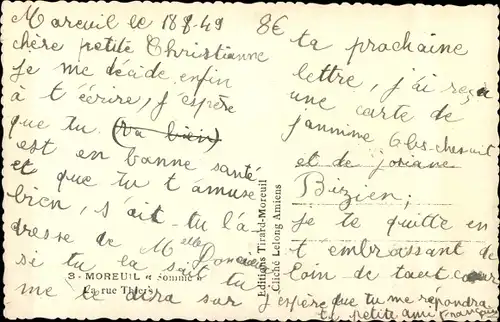 Moreuil le 18 8-49
8€
chère petite Christianne
Je me décide enfin
à t'écrire, j'espère
que tu (va bien)
est en bonne santé
et que tu t'amuse
bien, s'ait-tu l'a
dresse de Melle
si tu la sait tu
me le dira sur
ta prochaine
lettre, j'ai reçu
une carte de
jannine
et de josiane
Bizien;
Je te quitte en
t embrassant de
loin de tout cœur
J espère que tu me répondra
ta petite ami
3. MOREUIL « Somme »
La rue Thiers
Editions Tirard-Moreuil
Cliché Lelong Amiens